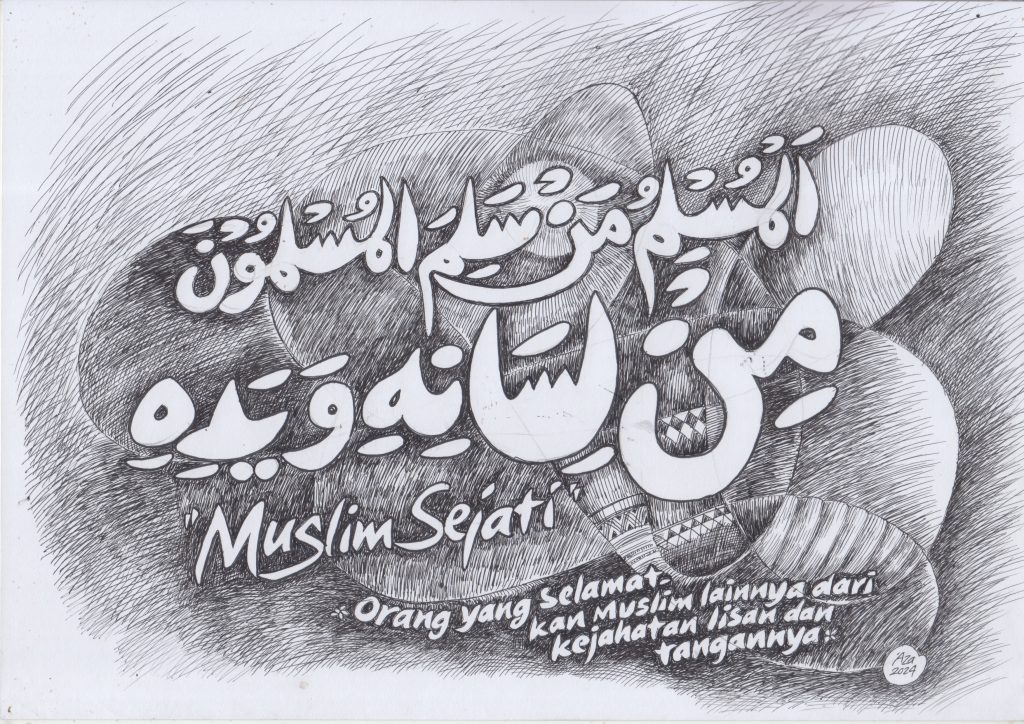 اَلْمُسْلِمُ مَنْ سَلِمَ الْمُسْلِمُوْنَ
مِنْ لِسَانِهِ وَيَدِهِ
"Muslim Sejati"
Orang yang selamat-
kan Muslim lainnya dari
kejahatan lisan dan
tangannya
Aza
2024